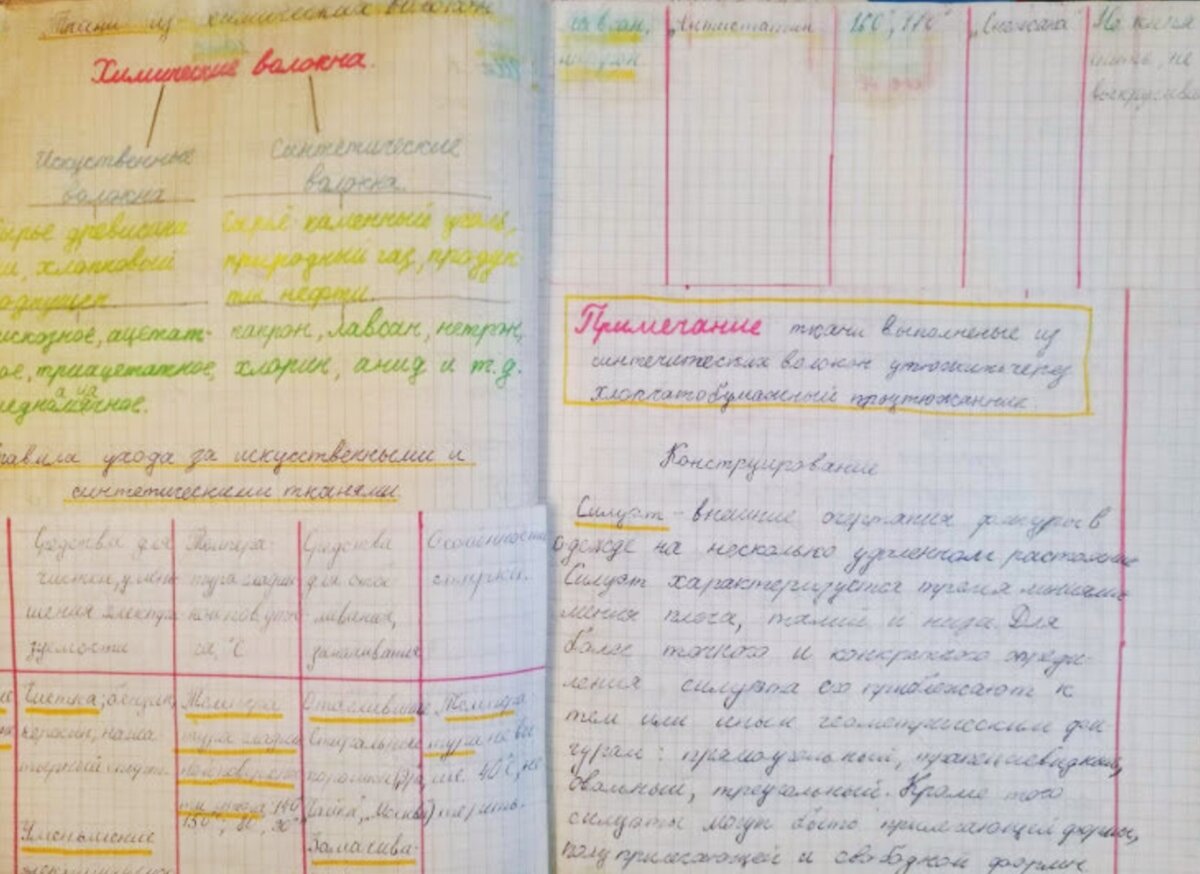 Ткани из химических волокон
Химические волокна.
Искуственные
волокна
Синтетические
волокна.
сырьё древисина
хлопковый
Сырьё каменный уголь,
природный газ, продук
ты нефти.
искозное, ацетат-
ое, триацетатное,
капрон, лавсан, нетрон,
хлорин, анид и т.д.
авила ухода за искусственными и
синтетическими тканями.
Средства для
чистки, умень
шения электри
зуемости
Темпера-
тура гладки
ки повер
°C
Средства
для отбе
ливания,
замачивания
Особенности
стирки.
Чистка: бензин,
керосин, наша
тырный спирт.
Уменьшение
Темпера
тура гладки
150°,
Отбеливание
стиральные
порошки
"Чайка", "Москва")
Замачива-
Темпера-
тура не вы
ше 40°C, не
тереть.
лавсан,
"Антистатик"
150°,
Не кипя
тить, не
выкручива
Примечание ткани выполненые из
синтечитеских волокон утюжить через
хлопчатобумажный проутюжаник.
Конструирование
Силуэт - внешние очертания фигуры в
одежде на несколько удаленном растояние
Силуэт характеризуется тремя линиями
линия плеча, талии и низа. Для
более точного и конкретного опреде-
ления силуэта его приближают к
тем или иным геометрическим фи
гурам: прямоугольный, трапециевидный,
Овальный, треугольный. Кроме того
силуэты могут быть прилегающей формы,
полуприлегающей и свободной формы